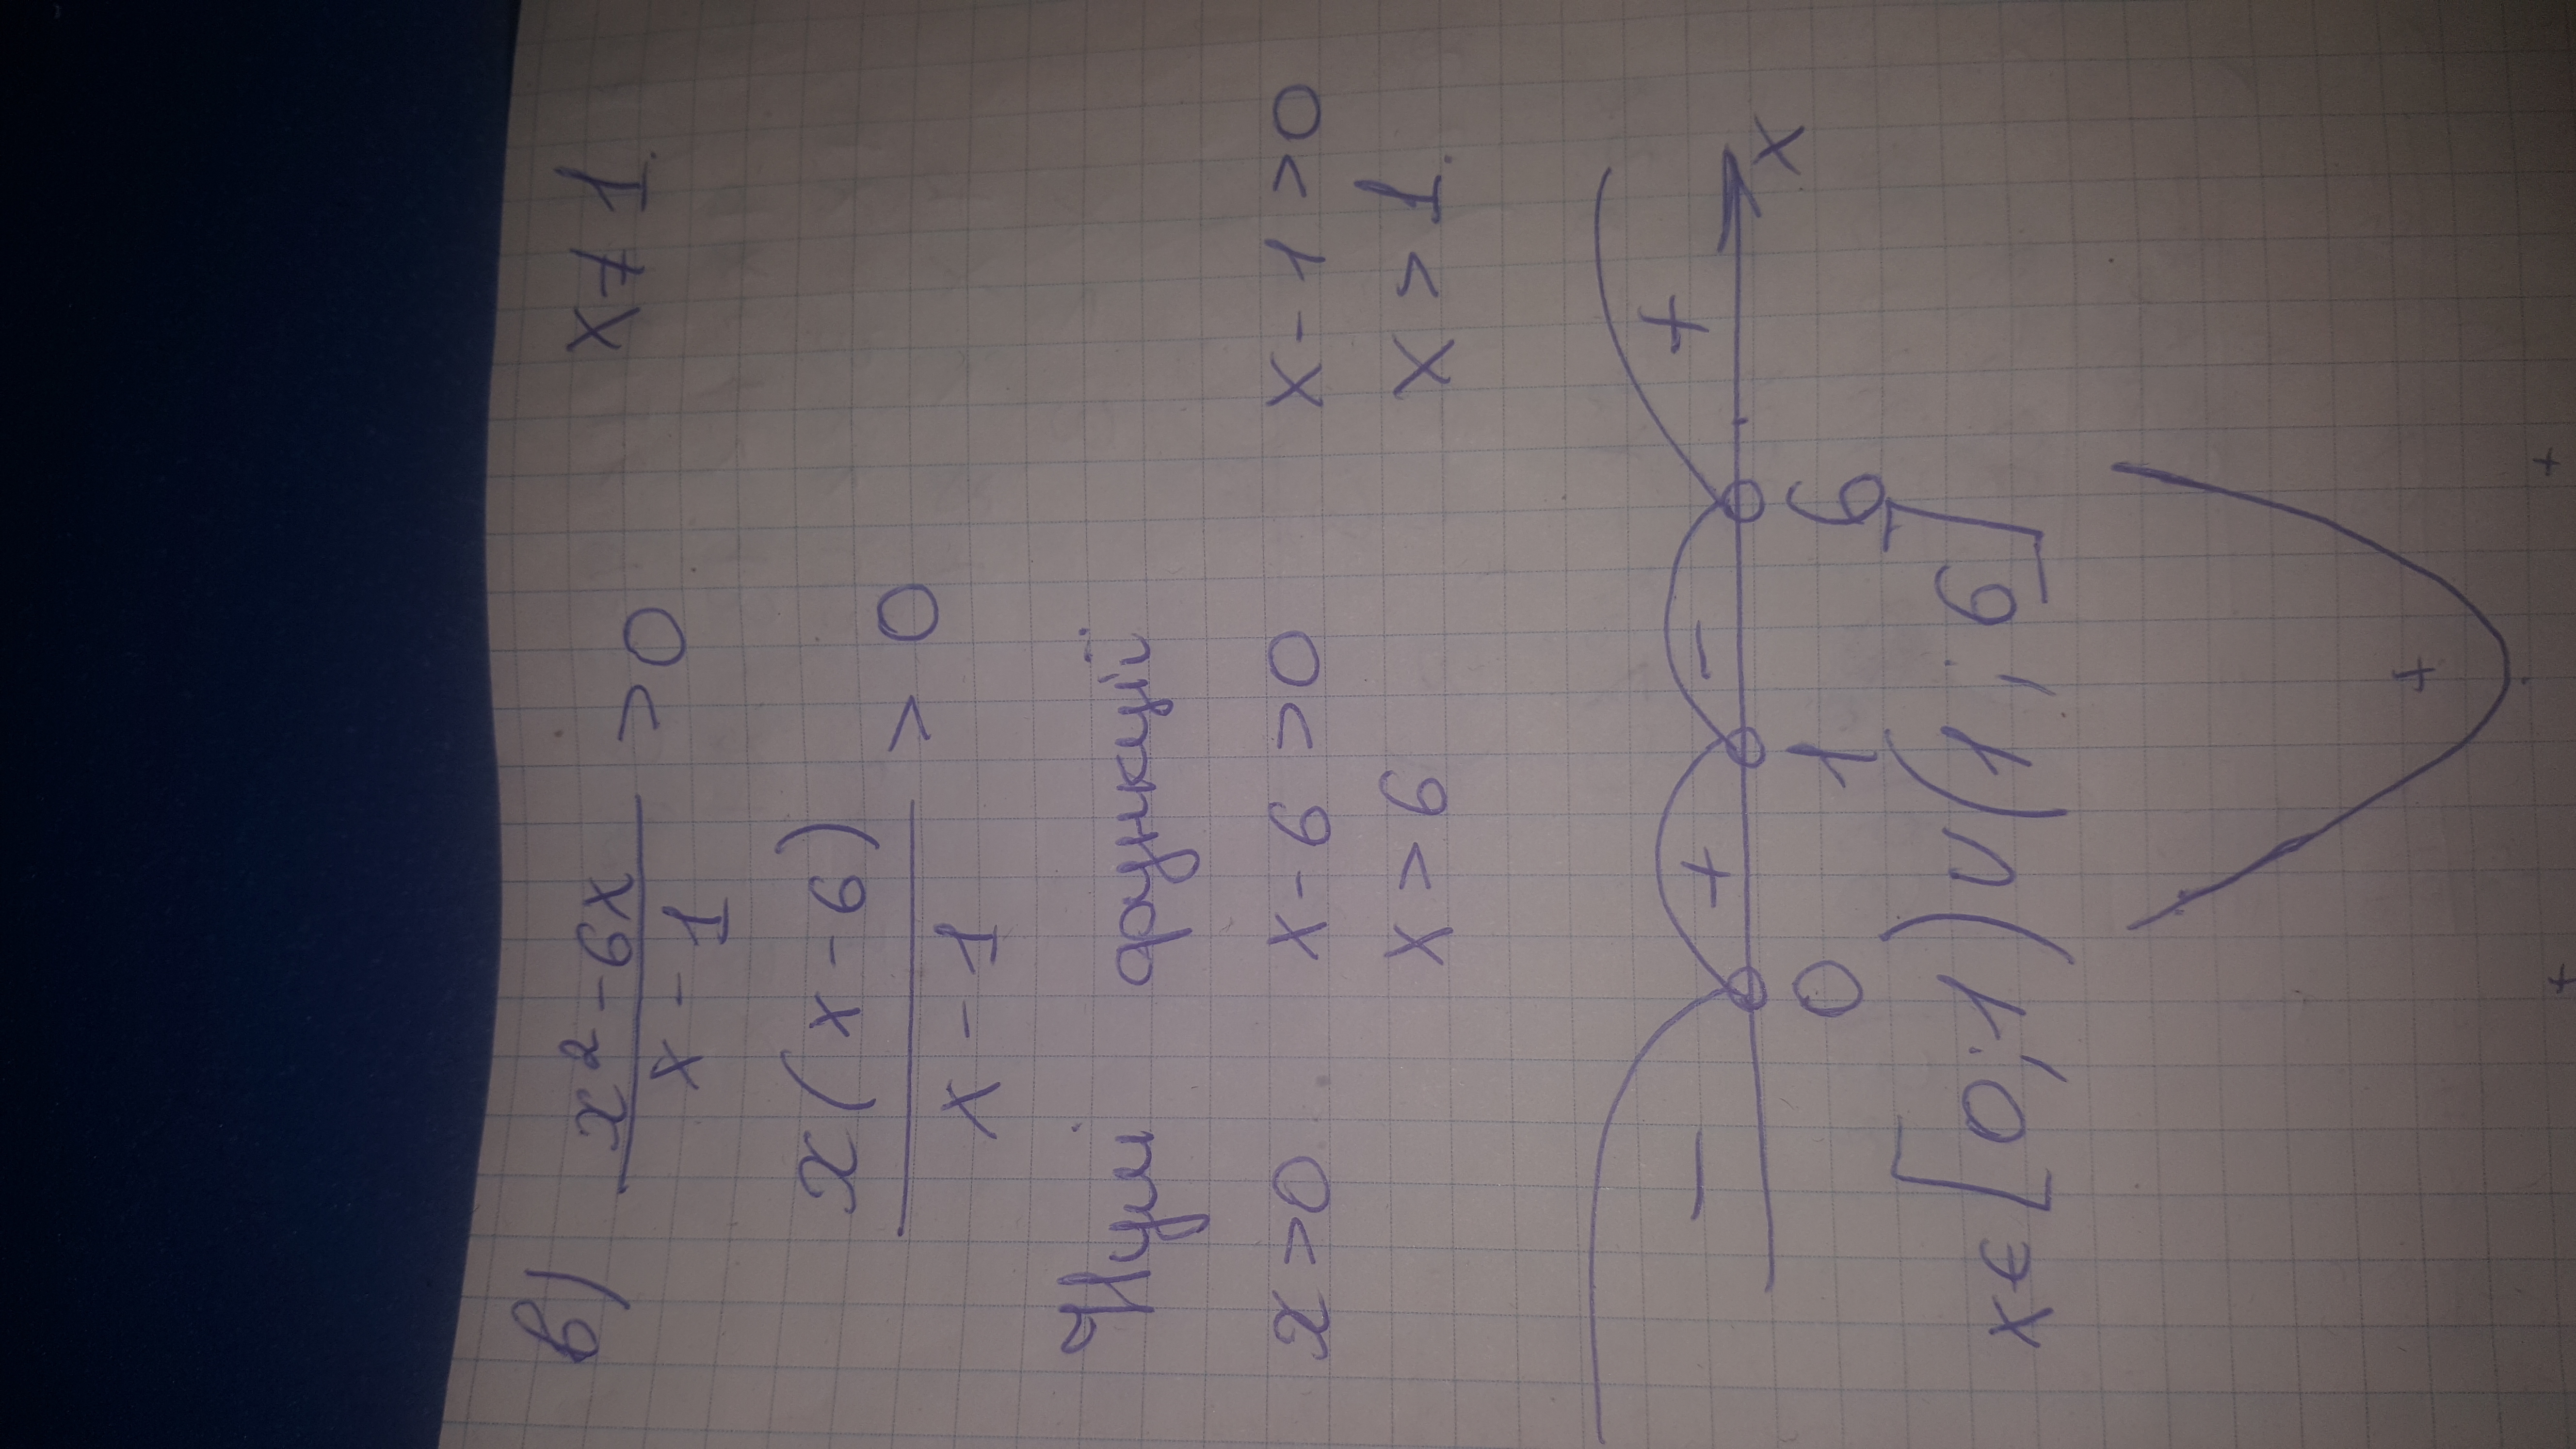 в) x² - 6x / x - 1 > 0 x ≠ 1
x(x - 6) / x - 1 > 0
Нулі функції
x > 0 x - 6 > 0 x - 1 > 0
x > 6 x > 1
- + - + x
0 1 6
x ∈ [0; 1) ∪ (1; 6]
+
+ +